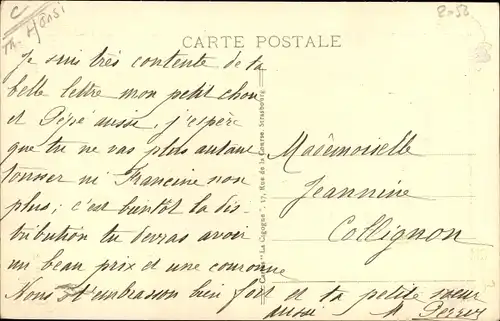 C
Th. Hansi
2-50
CARTE POSTALE
Je suis très contente de ta
belle lettre mon petit chou
et Pépé aussi, j'espère
que tu ne vas plus autant
tousser ni Francine non
plus; c'est bientôt la dis-
tribution tu devras avoir
un beau prix et une couronne
Nous t'embrasson bien fort et ta petite sœur
aussi
"La Cigogne", 17, Rue de la Course, Strasbourg
Mademoiselle
Jeannine
Collignon